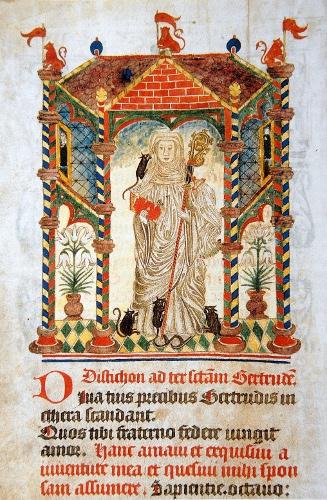 Distichon ad ter sctam Gertrude.
Dua tuis precibus Gertrudis in
ethera scandant.
Quos tibi fraterno federe iungit
amor. Hanc amaui et exquisiui a
iuuentute mea et quesiui mihi spon
sam assumere. Sapientie. octauo: